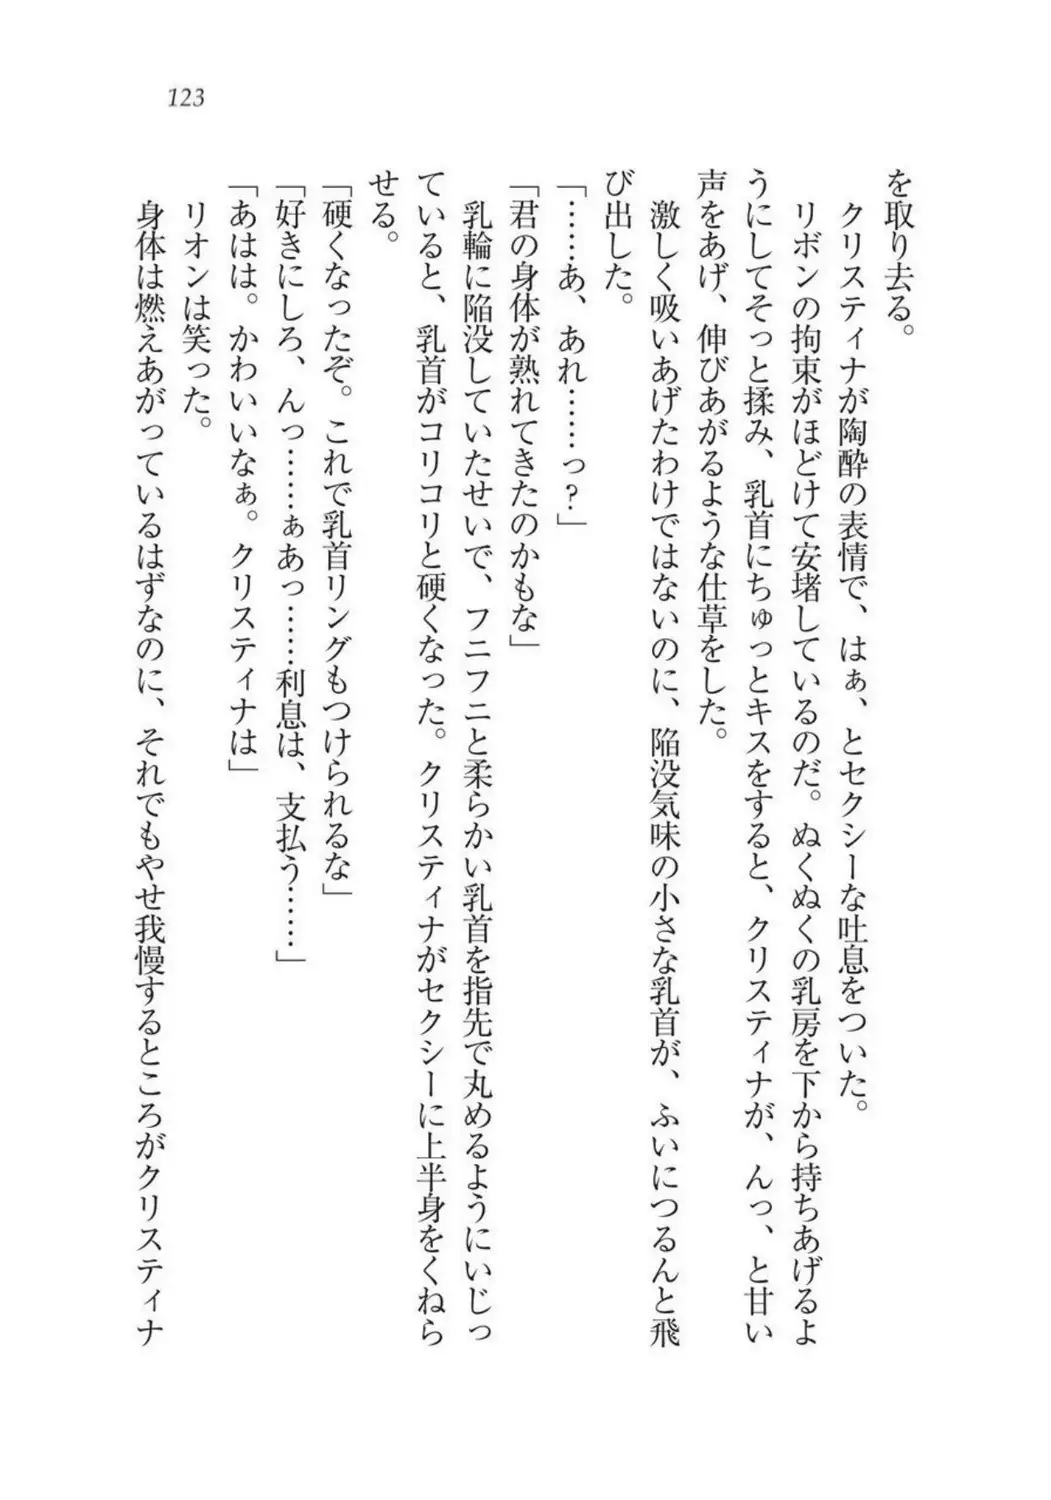 123
を取り去る。
クリスティナが陶酔の表情で、はぁ、とセクシーな吐息をついた。
リボンの拘束がほどけて安堵しているのだ。ぬくぬくの乳房を下から持ちあげるよ
うにしてそっと揉み、乳首にちゅっとキスをすると、クリスティナが、んっ、と甘い
声をあげ、伸びあがるような仕草をした。
激しく吸いあげたわけではないのに、陥没気味の小さな乳首が、ふいにつるんと飛
び出した。
「……あ、あれ……っ?」
「君の身体が熟れてきたのかもな」
乳輪に陥没していたせいで、フニフニと柔らかい乳首を指先で丸めるようにいじっ
ていると、乳首がコリコリと硬くなった。クリスティナがセクシーに上半身をくねら
せる。
「硬くなったぞ。これで乳首リングもつけられるな」
「好きにしろ、んっ……ぁあっ……利息は、支払う……」
「あはは。かわいいなぁ。クリスティナは」
リオンは笑った。
身体は燃えあがっているはずなのに、それでもやせ我慢するところがクリスティナ